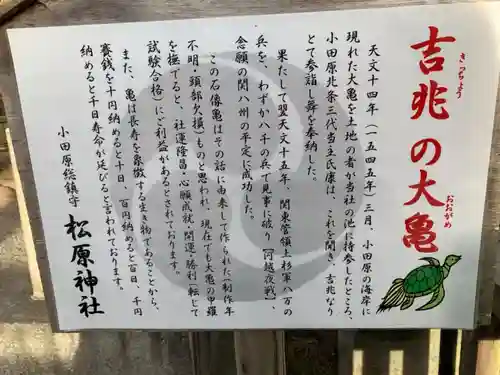 吉兆の大亀
きっちょう
おおがめ
天文十四年(一五四五年)三月、小田原の海岸に
現れた大亀を土地の者が当社の池に持参したところ、
小田原北条三代当主氏康は、これを聞き、吉兆なり
とて参詣し舞を奉納した。
果たして翌天文十五年、関東管領上杉軍八万の
兵を、わずか八千の兵で見事に破り(河越夜戦)、
念願の関八州の平定に成功した。
この石像亀はその話に由来して作られた(制作年
不明・頭部欠損)ものと思われ、現在でも大亀の甲羅
を撫でると、社運隆昌・心願成就・開運・勝利(転じて
試験合格)にご利益があるとされております。
また、亀は長寿を象徴する生き物であることから、
賽銭を十円納めると十日、百円納めると百日、千円
納めると千日寿命が延びると言われております。
小田原総鎮守
松原神社